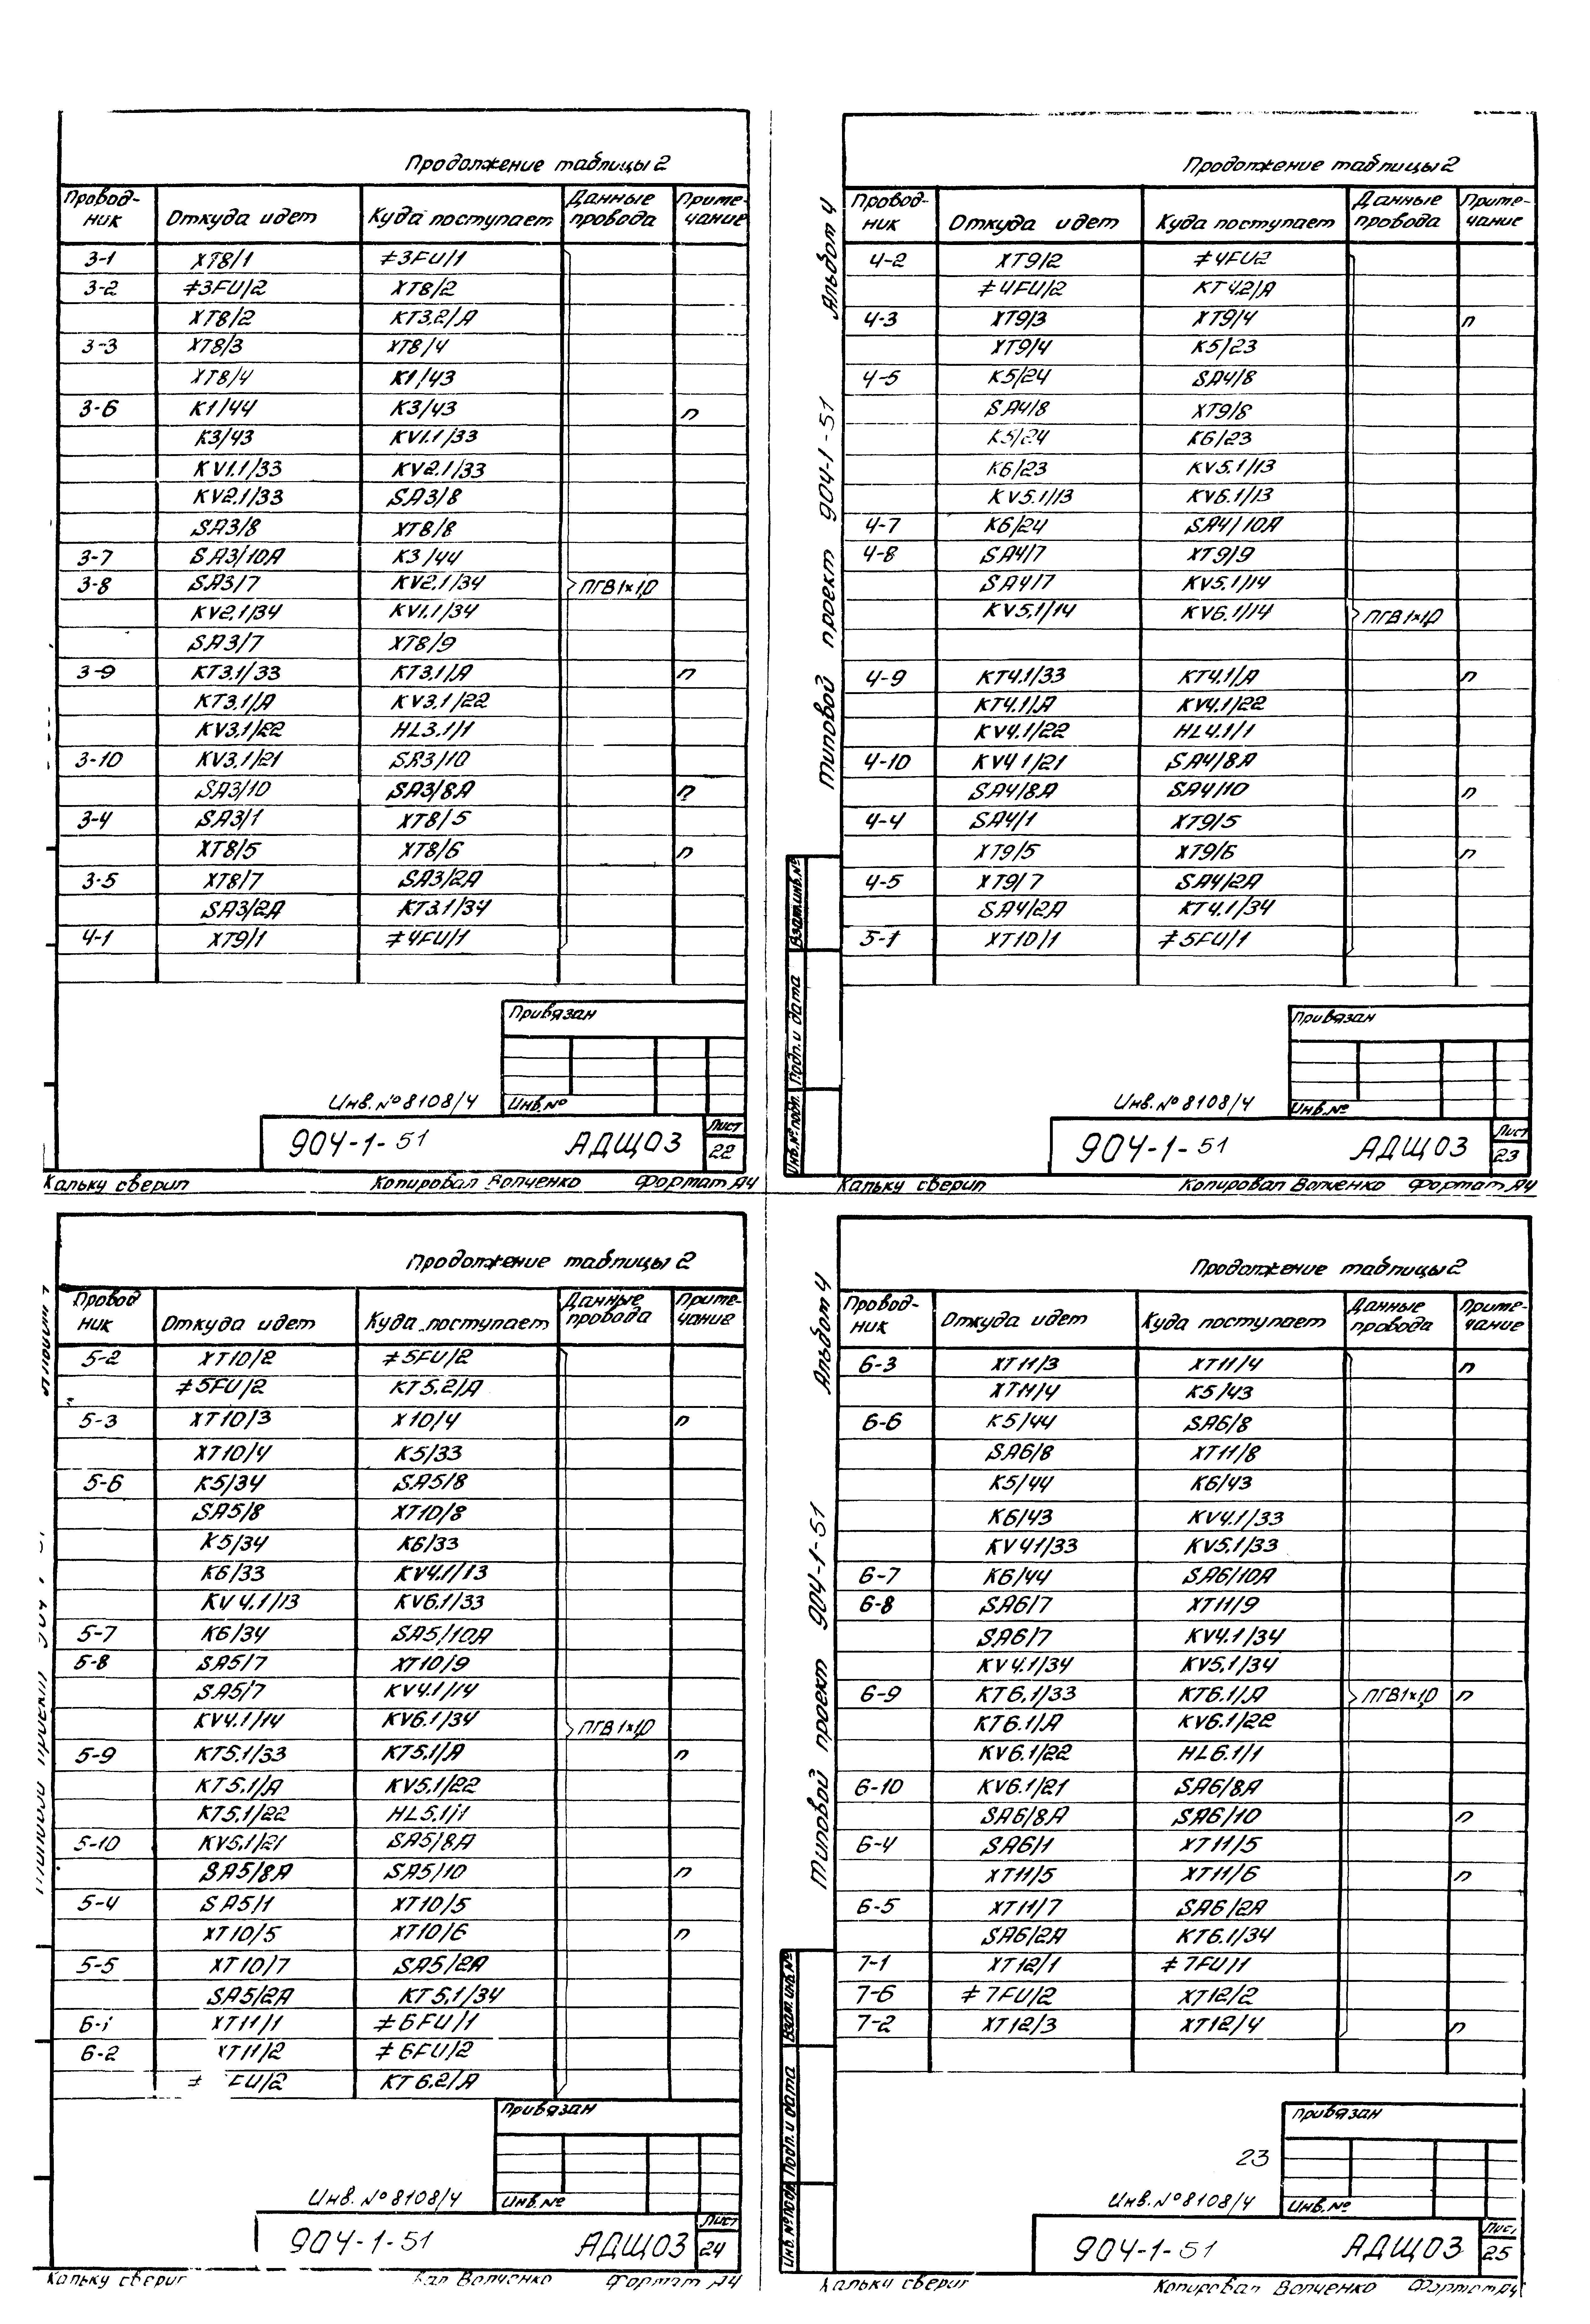 Продолжение таблицы 2
Провод-ник Откуда идет Куда поступает Данные провода Приме-чание
3-1 XT8/1 ≠3FU/1
3-2 ≠3FU/2 XT8/2
XT8/2 KT3.2/A
3-3 XT8/3 XT8/4
XT8/4 K1/43
3-6 K1/44 K3/43 п
K3/43 KV1.1/33
KV1.1/33 KV2.1/33
KV2.1/33 SA3/8
SA3/8 XT8/8
3-7 SA3/10A K3/44
3-8 SA3/7 KV2.1/34 ПГВ1×1,0
KV2.1/34 KV1.1/34
SA3/7 XT8/9
3-9 KT3.1/33 KT3.1/A п
KT3.1/A KV3.1/22
KV3.1/22 HL3.1/1
3-10 KV3.1/21 SA3/10
SA3/10 SA3/8A п
3-4 SA3/1 XT8/5
XT8/5 XT8/6 п
3-5 XT8/7 SA3/2A
SA3/2A KT3.1/34
4-1 XT9/1 ≠4FU/1
Привязан
Инв.№8108/4 Инв.№
904-1-51 АДЩ03 Лист 22
Кальку сверил Копировал Волченко Формат А4
Альбом 4
Типовой проект 904-1-51
Продолжение таблицы 2
Провод-ник Откуда идет Куда поступает Данные провода Приме-чание
4-2 XT9/2 ≠4FU2
≠4FU/2 KT4.2/A
4-3 XT9/3 XT9/4 п
XT9/4 K5/23
4-5 K5/24 SA4/8
SA4/8 XT9/8
K5/24 K6/23
K6/23 KV5.1/13
KV5.1/13 KV6.1/13
4-7 K6/24 SA4/10A
4-8 SA4/7 XT9/9
SA4/7 KV5.1/14
KV5.1/14 KV6.1/14 ПГВ1×1,0
4-9 KT4.1/33 KT4.1/A п
KT4.1/A KV4.1/22
KV4.1/22 HL4.1/1
4-10 KV4 1/21 SA4/8A
SA4/8A SA4/10 п
4-4 SA4/1 XT9/5
XT9/5 XT9/6 п
4-5 XT9/7 SA4/2A
SA4/2A KT4.1/34
5-1 XT10/1 ≠5FU/1
Взам.инв.№
Подп. и дата
Инв.№ подл.
Привязан
Инв.№8108/4 Инв.№
904-1-51 АДЩ03 Лист 23
Кальку сверил Копировал Волченко Формат А4
Продолжение таблицы 2
Провод ник Откуда идет Куда поступает Данные провода Приме-чание
5-2 XT10/2 ≠5FU/2
≠5FU/2 KT5.2/A
5-3 XT10/3 X10/4 п
XT10/4 K5/33
5-6 K5/34 SA5/8
SA5/8 XT10/8
K5/34 K6/33
K6/33 KV4.1/13
KV4.1/13 KV6.1/33
5-7 K6/34 SA5/10A
5-8 SA5/7 XT10/9
SA5/7 KV4.1/14
KV4.1/14 KV6.1/34 ПГВ1×1,0
5-9 KT5.1/33 KT5.1/A п
KT5.1/A KV5.1/22
KT5.1/22 HL5.1/1
5-10 KV5.1/21 SA5/8A
SA5/8A SA5/10 п
5-4 SA5/1 XT10/5
XT10/5 XT10/6 п
5-5 XT10/7 SA5/2A
SA5/2A KT5.1/34
6-1 XT11/1 ≠6FU/1
6-2 XT11/2 ≠6FU/2
≠ FU/2 KT6.2/A
Привязан
Инв.№8108/4 Инв.№
904-1-51 АДЩ03 Лист 24
Кальку сверил вал Волченко Формат А4
Альбом 4
Типовой проект 904-1-51
Продолжение таблицы 2
Провод-ник Откуда идет Куда поступает Данные провода Приме-чание
6-3 XT11/3 XT11/4 п
XT11/4 K5/43
6-6 K5/44 SA6/8
SA6/8 XT11/8
K5/44 K6/43
K6/43 KV4.1/33
KV41/33 KV5.1/33
6-7 K6/44 SA6/10A
6-8 SA6/7 XT11/9
SA6/7 KV4.1/34
KV4.1/34 KV5.1/34
6-9 KT6.1/33 KT6.1/A ПГВ1×1,0 п
KT6.1/A KV6.1/22
KV6.1/22 HL6.1/1
6-10 KV6.1/21 SA6/8A
SA6/8A SA6/10 п
6-4 SA6/1 XT11/5
XT11/5 XT11/6 п
6-5 XT11/7 SA6/2A
SA6/2A KT6.1/34
7-1 XT12/1 ≠7FU/1
7-6 ≠7FU/2 XT12/2
7-2 XT12/3 XT12/4 п
Взам. инв.№
Подп. и дата
Инв.№ подл
Привязан
23
Инв.№8108/4 Инв.№
904-1-51 АДЩ03 Лист 25
Кальку сверил Копировал Волченко Формат А4